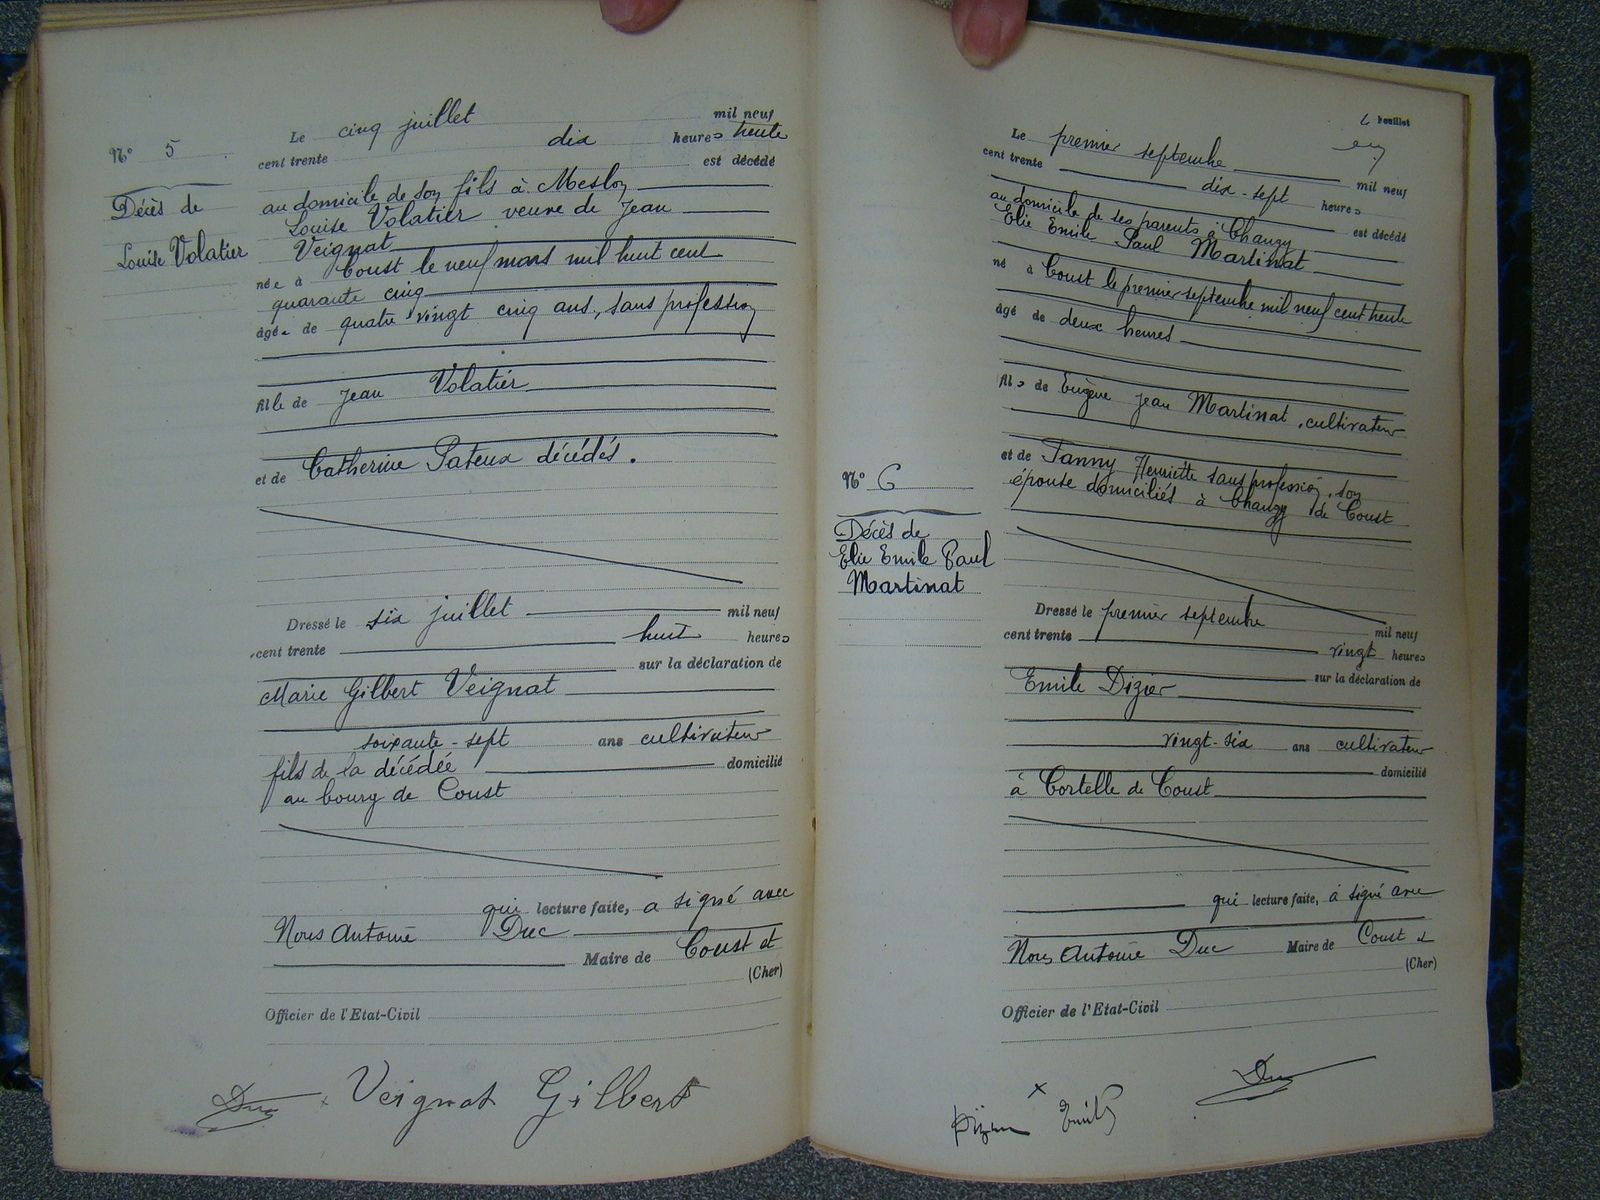 N° 5
Décès de
Louise Volatier
Le cinq juillet mil neuf
cent trente dix heures trente
est décédé
au domicile de son fils à Meslon
Louise Volatier veuve de Jean
Veignat
née à Coust le neuf mars mil huit cent
quarante cinq
âgée de quatre vingt cinq ans, sans profession
fille de Jean Volatier
et de Catherine Pateux décédés.
Dressé le six juillet mil neuf
cent trente huit heures
sur la déclaration de
Marie Gilbert Veignat
soixante-sept ans cultivateur
fils de la décédée domicilié
au bourg de Coust
qui lecture faite, a signé avec
Nous Antoine Duc
Maire de Coust et
(Cher)
Officier de l'Etat-Civil
Duc Veignat Gilbert
feuillet
N° 6
Décès de
Elie Emile Paul
Martinat
Le premier septembre mil neuf
cent trente dix-sept heures
est décédé
au domicile de ses parents à Changy
Elie Emile Paul Martinat
né à Coust le premier septembre mil neuf cent trente
âgé de deux heures
fils de Eugène Jean Martinat, cultivateur
et de Fanny Henriette sans profession, son
épouse domiciliés à Changy de Coust
Dressé le premier septembre mil neuf
cent trente vingt heures
sur la déclaration de
Emile Dizier
vingt-six ans cultivateur
domicilié
à Cortelle de Coust
qui lecture faite, a signé avec
Nous Antoine Duc Maire de Coust et
(Cher)
Officier de l'Etat-Civil
Emile Duc